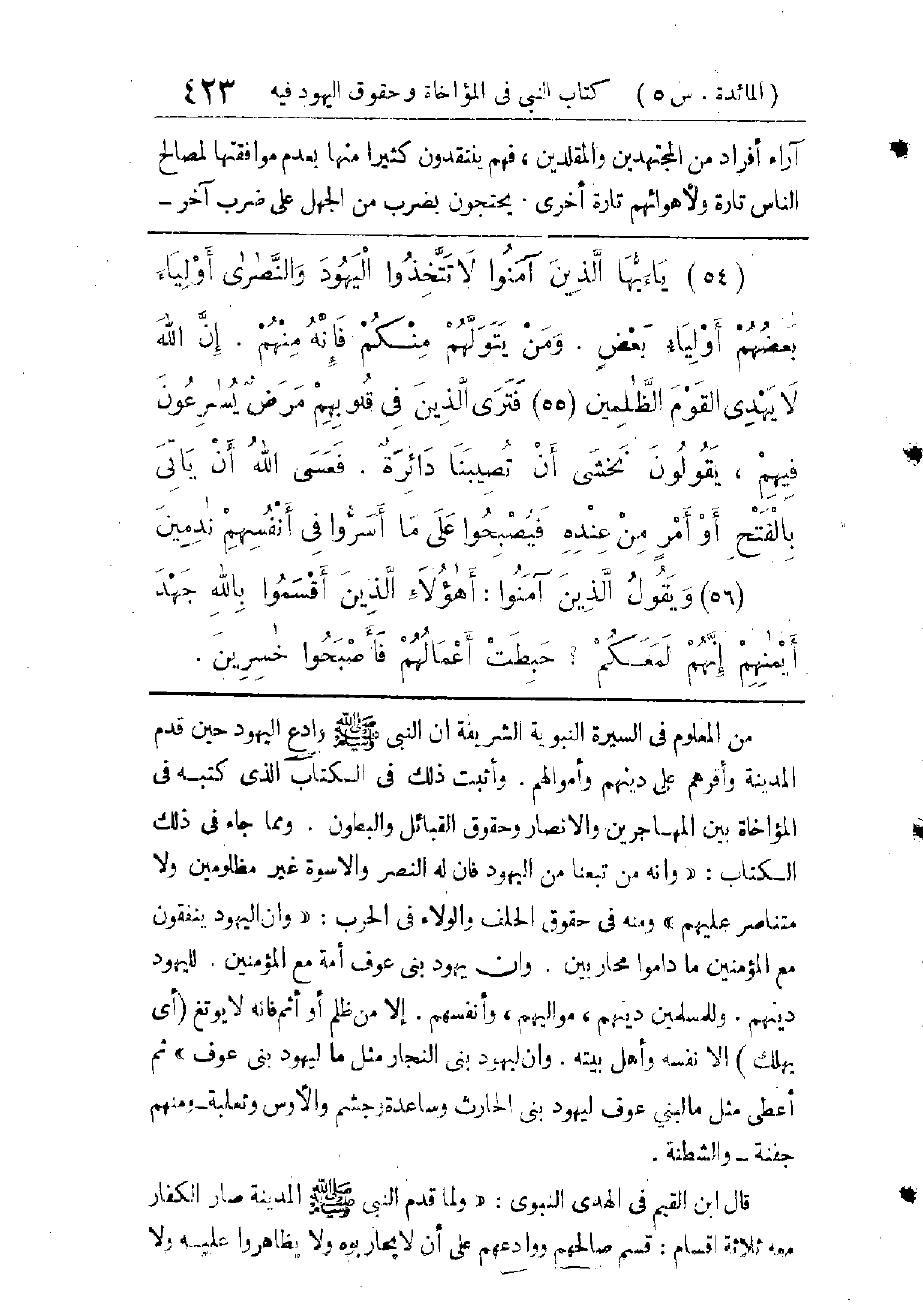 ( المائدة . س ٥ ) كتاب النبي في المؤاخاة وحقوق اليهود فيه ٤٢٣
آراء أفراد من المجتهدين والمقلدين ، فهم ينتقدون كثيرا منها بعدم موافقتها لمصالح
الناس تارة ولأهوائهم تارة أخرى . يحتجون بضرب من الجهل على ضرب آخر ـ
(٥٤) يَاءَيُّهَا الَّذِينَ آمَنُوا لَا تَتَّخِذُوا الْيَهُودَ وَالنَّصٰرٰى أَوْلِيَاءَ
بَعْضُهُمْ أَوْلِيَاءُ بَعْضٍ . وَمَنْ يَتَوَلَّهُمْ مِنْكُمْ فَإِنَّهُ مِنْهُمْ . إِنَّ اللهَ
لَا يَهْدِي القَوْمَ الظّٰلِمِين (٥٥) فَتَرَى الَّذِينَ فِي قُلُوبِهِمْ مَرَضٌ يُسٰرِعُونَ
فِيهِمْ ، يَقُولُونَ نَخْشَى أَنْ تُصِيبَنَا دَائِرَةٌ . فَعَسَى اللهُ أَنْ يَأْتِيَ
بِالْفَتْحِ أَوْ أَمْرٍ مِنْ عِنْدِهِ فَيُصْبِحُوا عَلَى مَا أَسَرُّوا فِي أَنْفُسِهِمْ نٰدِمِينَ
(٥٦) وَيَقُولُ الَّذِينَ آمَنُوا : أَهٰؤُلَاءِ الَّذِينَ أَقْسَمُوا بِاللهِ جَهْدَ
أَيْمٰنِهِمْ إِنَّهُمْ لَمَعَكُمْ ؟ حَبِطَتْ أَعْمَالُهُمْ فَأَصْبَحُوا خٰسِرِينَ .
من المعلوم في السيرة النبوية الشريفة ان النبي ﷺ وادع اليهود حين قدم
المدينة وأقرهم على دينهم وأموالهم . وأثبت ذلك في الكتاب الذي كتبه في
المؤاخاة بين المهاجرين والانصار وحقوق القبائل والبطون . ومما جاء في ذلك
الكتاب : « وانه من تبعنا من اليهود فان له النصر والاسوة غير مظلومين ولا
متناصر عليهم » ومنه في حقوق الحلف والولاء في الحرب : « وان اليهود ينفقون
مع المؤمنين ما داموا محاربين . وان يهود بني عوف أمة مع المؤمنين . لليهود
دينهم . وللمسلمين دينهم ، مواليهم ، وأنفسهم . إلا من ظلم أو أثم فانه لا يوتغ (أي
يهلك ) الا نفسه وأهل بيته . وان ليهود بني النجار مثل ما ليهود بني عوف » ثم
أعطى مثل ما لبني عوف ليهود بني الحارث وساعدة وجشم والأوس وثعلبة ـ ومنهم
جفنة ـ والشطنة .
قال ابن القيم في الهدى النبوي : « ولما قدم النبي ﷺ المدينة صار الكفار
معه ثلاثة اقسام : قسم صالحهم ووادعهم على أن لا يحاربوه ولا يظاهروا عليه ولا